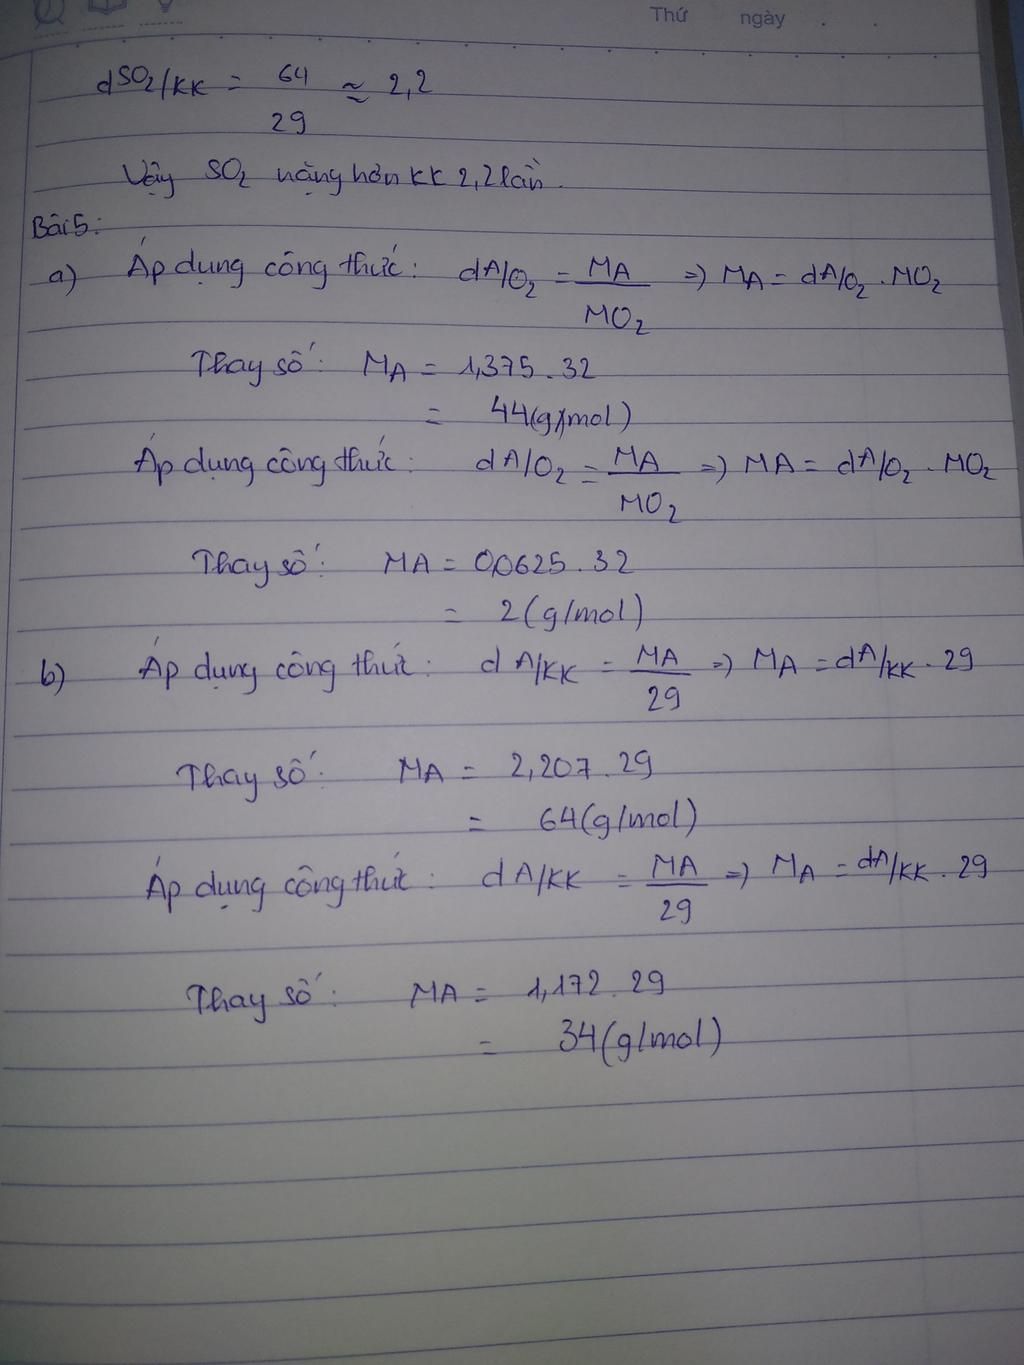 Thứ ngày . .
dSO₂/KK = 64/29 ≈ 2,2
Vậy SO₂ nặng hơn KK 2,2 lần.
Bài 5:
a) Áp dụng công thức: dA/O₂ = MA/MO₂ => MA = dA/O₂ . MO₂
Thay số: MA = 1,375 . 32
= 44(g/mol)
Áp dụng công thức: dA/O₂ = MA/MO₂ => MA = dA/O₂ . MO₂
Thay số: MA = 0,0625 . 32
= 2(g/mol)
b) Áp dụng công thức: dA/KK = MA/29 => MA = dA/KK . 29
Thay số: MA = 2,207 . 29
= 64(g/mol)
Áp dụng công thức: dA/KK = MA/29 => MA = dA/KK . 29
Thay số: MA = 1,172 . 29
= 34(g/mol)